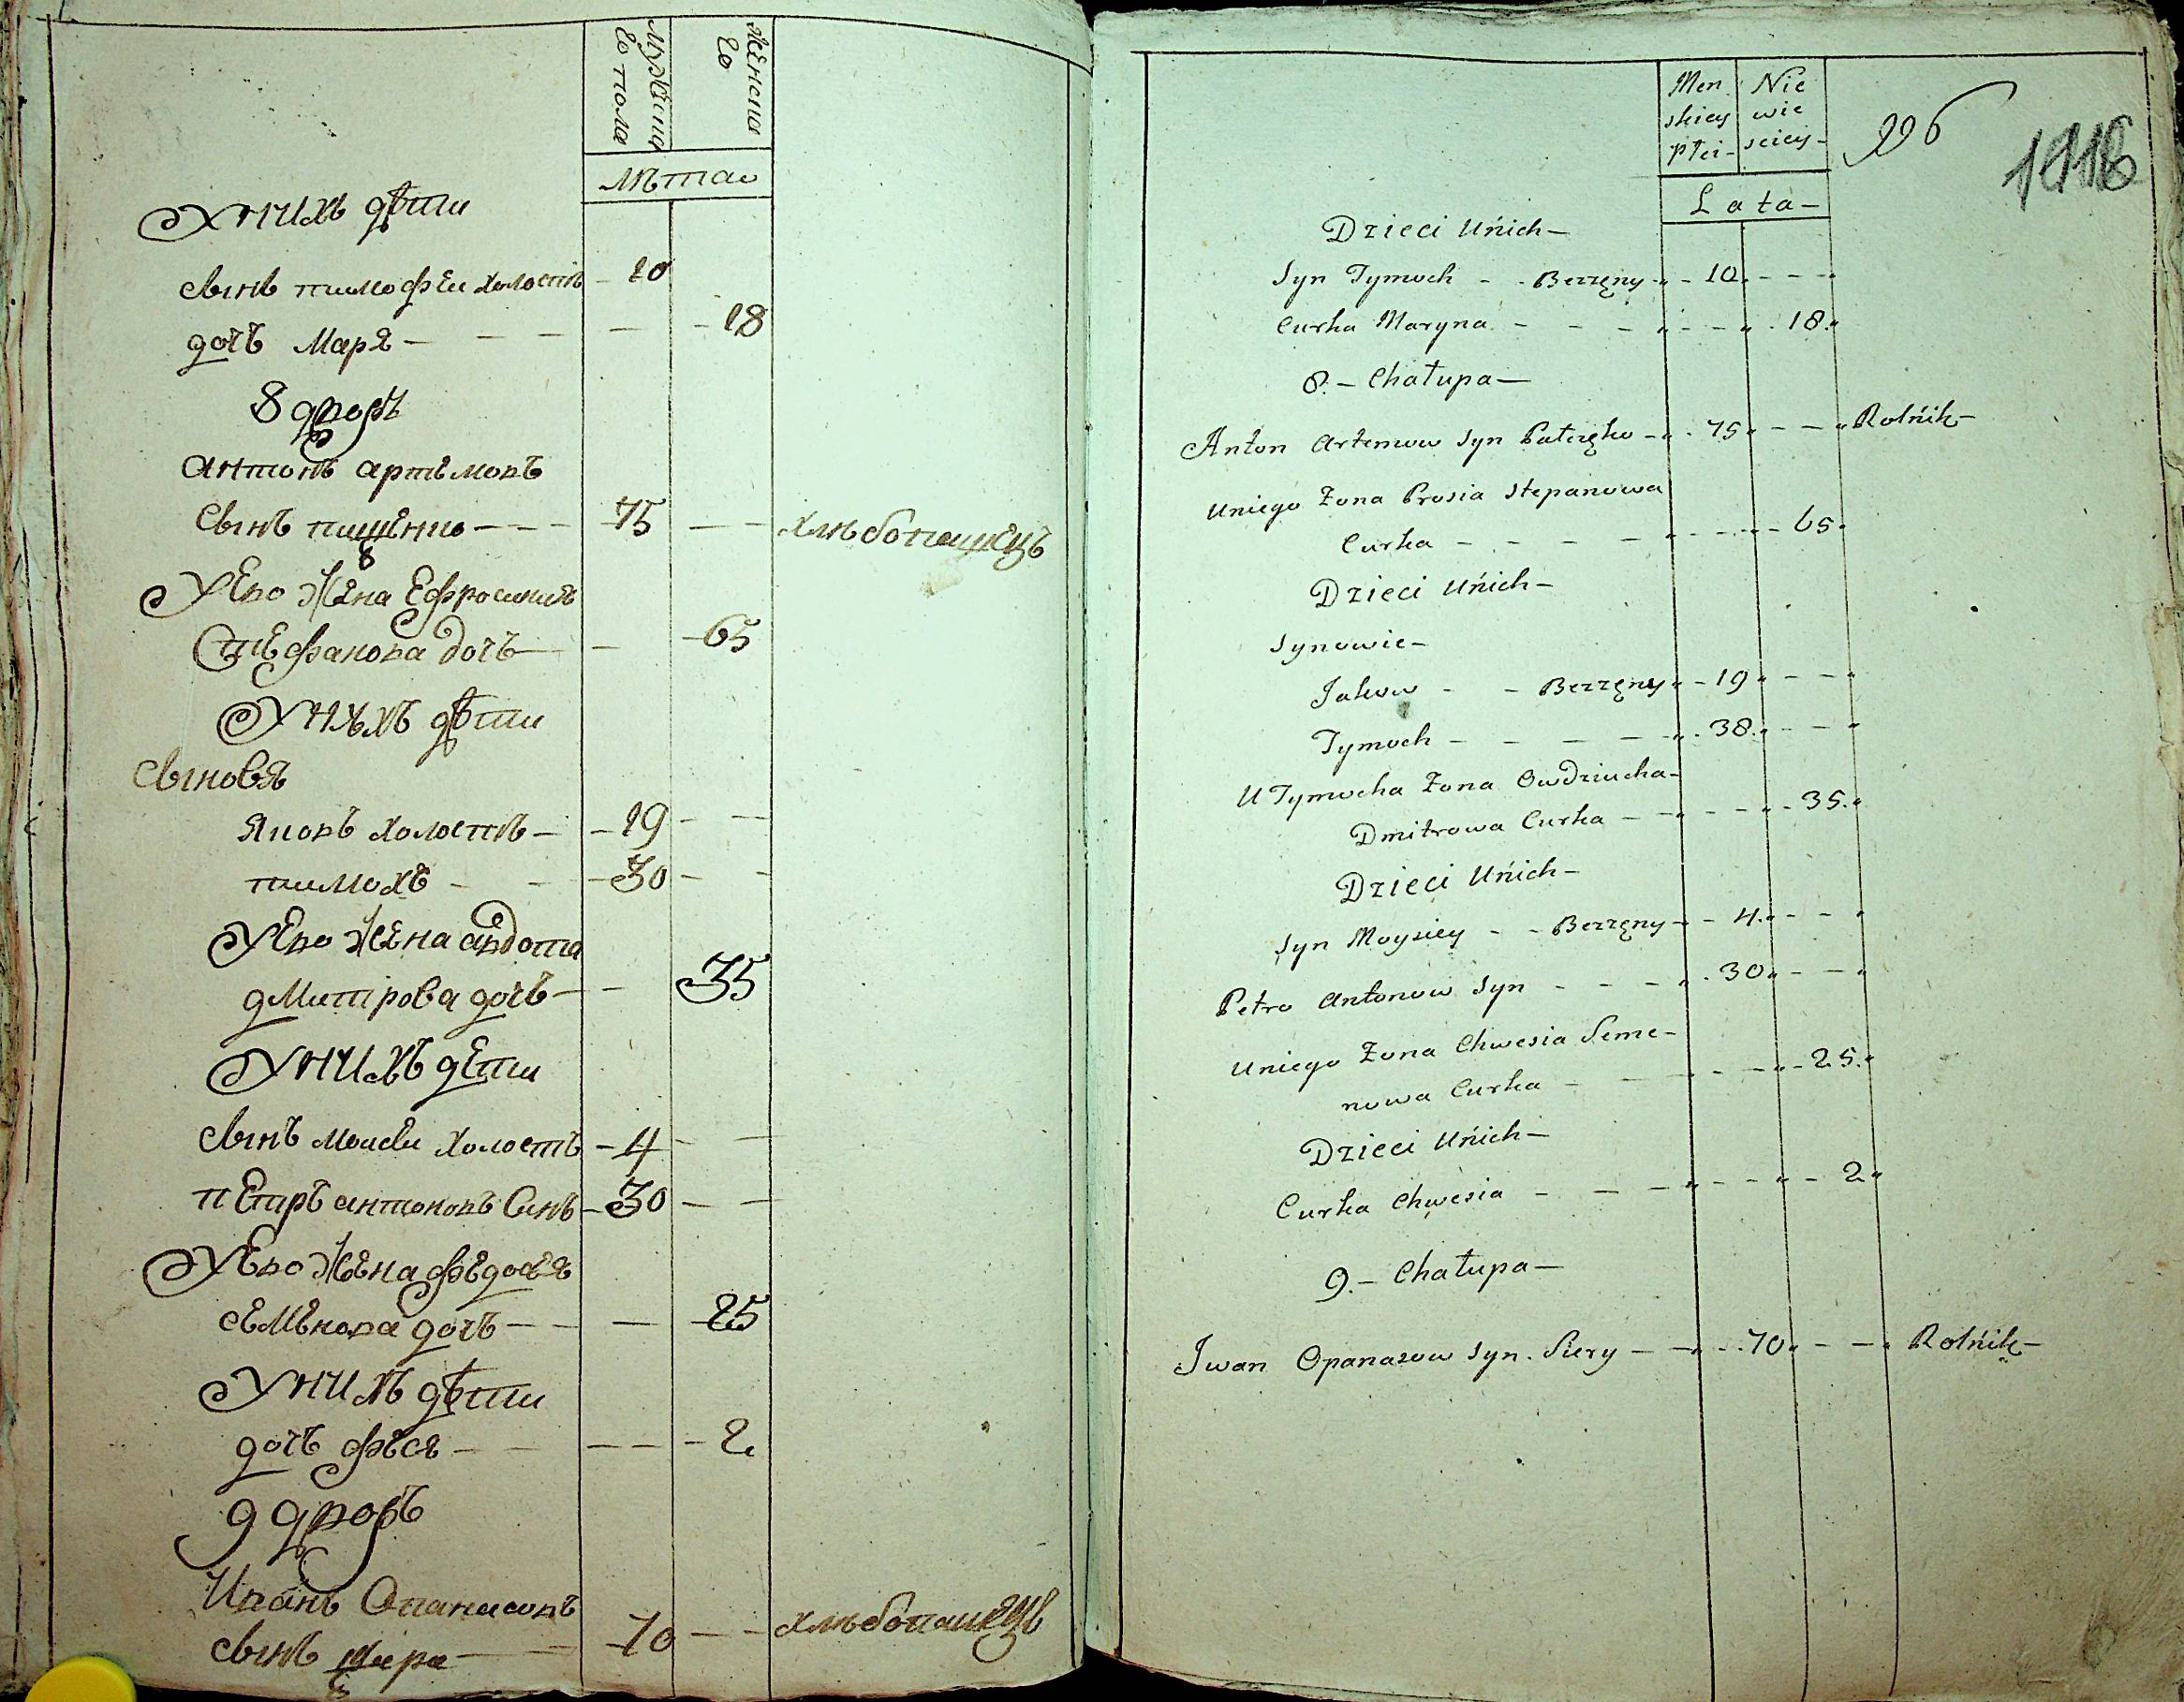 Мужеска
го пола
женска
го
лѣта
У нихъ дѣти
сынъ тимофеи холостъ - 10
дочь Маря - - - - - 18
8 дворъ
Антонъ артемовъ
сынъ - - - 75 - - хлѣбопашецъ
У Его Жена Ефросиния
Стефанова дочь - - 65
У нихъ дѣти
сыновя
Яковъ холостъ - - 19 - -
тимохъ - - - 30 - -
У Его Жена авдотя
дмитрова дочь - - 35
У нихъ дети
сынъ моисеи холостъ - 4 - -
петръ антоновъ Синъ - 30 - -
У Его Жена феdося
семенова дочь - - - 25
У нихъ дѣти
дочь феся - - - - 2
9 дворъ
Иванъ Опанасовъ
сынъ - 70 - - хлѣбопашецъ
Men
skiey
Płci -
Nie
wie
sciey -
Lata -
226
1116
Dzieci Unich -
Syn Tymoch - - Bezzęny - 10 - - -
Curka Maryna - - - - - 18
8. - Chałupa -
Anton Artemow Syn - 75 - - Rolnik -
Uniego Zona Prosia Stepanowa
Curka - - - - - - 65
Dzieci Unich -
Synowie -
Jakow - - Bezzęny - 19 - - -
Tymoch - - - - - 38 - - -
U Tymocha Zona Owdziucha -
Dmitrowa Curka - - - - 35
Dzieci Unich -
Syn Moysiey - - Bezzęny - - 4 - - -
Petro Antonow Syn - - - 30 - - -
Uniego Zona Chwesia Seme -
nowa Curka - - - - 25
Dzieci Unich -
Curka Chwesia - - - - - - 2
9. - Chałupa -
Iwan Opanasow Syn. Siery - - - 70 - - Rolnik -